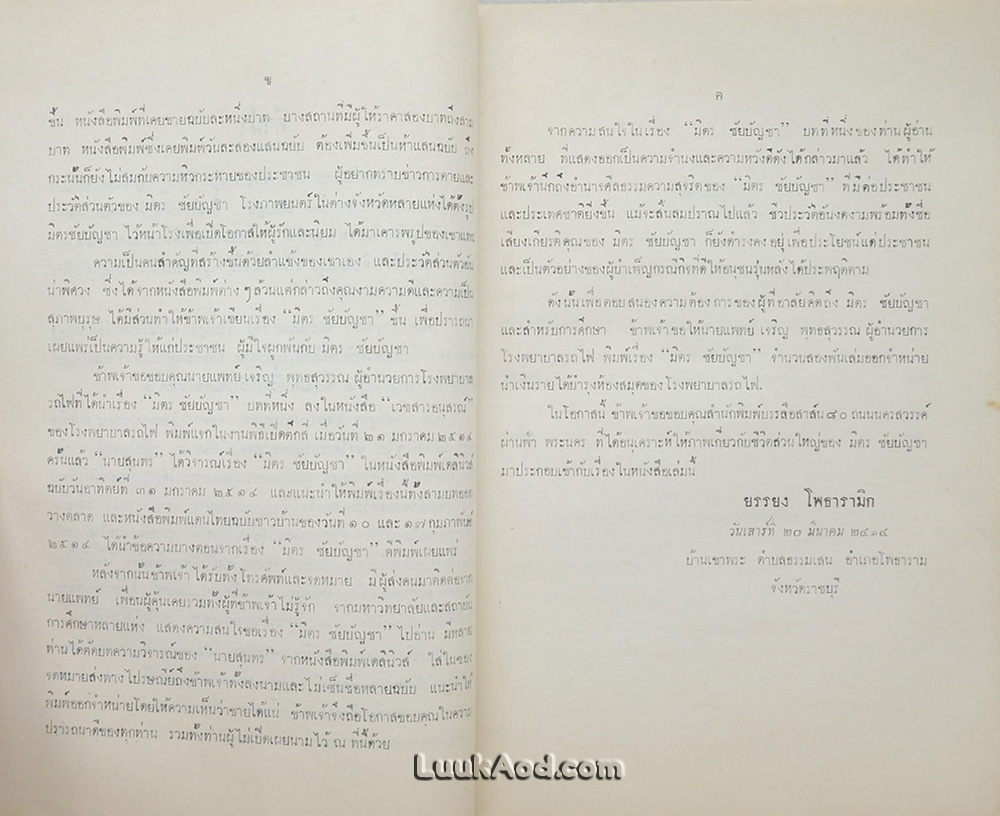 ข
ขึ้น หนังสือพิมพ์ที่เคยขายฉบับละหนึ่งบาท บางสถานที่มีผู้ให้ราคาสองบาทถึงสาม
บาท หนังสือพิมพ์ซึ่งเคยพิมพ์วันละสองแสนฉบับ ต้องเพิ่มขึ้นเป็นห้าแสนฉบับ ถึง
กระนั้นก็ยังไม่สมกับความหิวกระหายของประชาชน ผู้อยากทราบข่าวการตายและ
ประวัติส่วนตัวของ มิตร ชัยบัญชา โรงภาพยนตร์ในต่างจังหวัดหลายแห่งได้ตั้งรูป
มิตรชัยบัญชา ไว้หน้าโรงเพื่อเปิดโอกาสให้ผู้รักและนิยม ได้มาเคารพรูปของเขาแทน
ความเป็นคนสำคัญที่สร้างขึ้นด้วยลำแข้งของเขาเอง และประวัติส่วนตัวอัน
น่าพิศวง ซึ่งได้จากหนังสือพิมพ์ต่าง ๆ ล้วนแต่กล่าวถึงคุณงามความดีและความเป็น
สุภาพบุรุษ ได้มีส่วนทำให้ข้าพเจ้าเขียนเรื่อง “มิตร ชัยบัญชา” ขึ้น เพื่อปรารถนา
เผยแพร่เป็นความรู้ให้แก่ประชาชน ผู้มีใจผูกพันกับ มิตร ชัยบัญชา
ข้าพเจ้าขอขอบคุณนายแพทย์ เจริญ พุทธสุวรรณ ผู้อำนวยการโรงพยาบาล
รถไฟที่ได้นำเรื่อง “มิตร ชัยบัญชา” บทที่หนึ่ง ลงในหนังสือ “เวชสารอนุสรณ์”
ของโรงพยาบาลรถไฟ พิมพ์แจกในงานพิธีเปิดตึกสี่ เมื่อวันที่ ๒๑ มกราคม ๒๕๑๔
ครั้นแล้ว “นายสุนทร” ได้วิจารณ์เรื่อง “มิตร ชัยบัญชา” ในหนังสือพิมพ์เดลินิวส์
ฉบับวันอาทิตย์ที่ ๓๑ มกราคม ๒๕๑๔ และแนะนำให้พิมพ์เรื่องนี้ทั้งสามบทออก
วางตลาด และหนังสือพิมพ์แดนไทยฉบับชาวบ้านของวันที่ ๑๐ และ ๑๗ กุมภาพันธ์
๒๕๑๔ ได้นำข้อความบางตอนจากเรื่อง “มิตร ชัยบัญชา” ตีพิมพ์เผยแพร่
หลังจากนั้นข้าพเจ้า ได้รับทั้งโทรศัพท์และจดหมาย มีผู้ส่งคนมาติดต่อจาก
นายแพทย์ เพื่อนผู้คุ้นเคยรวมทั้งผู้ที่ข้าพเจ้าไม่รู้จัก จากมหาวิทยาลัยและสถาบัน
การศึกษาหลายแห่ง แสดงความสนใจขอเรื่อง “มิตร ชัยบัญชา” ไปอ่าน มีหลาย
ท่านได้ตัดบทความวิจารณ์ของ “นายสุนทร” จากหนังสือพิมพ์เดลินิวส์ ใส่ในซอง
จดหมายส่งทางไปรษณีย์ถึงข้าพเจ้าทั้งลงนามและไม่เซ็นชื่อหลายฉบับ แนะนำให้
พิมพ์ออกจำหน่ายโดยให้ความเห็นว่าขายได้แน่ ข้าพเจ้าจึงถือโอกาสขอบคุณในความ
ปรารถนาดีของทุกท่าน รวมทั้งท่านผู้ไม่เปิดเผยนามไว้ ณ ที่นี้ด้วย
ค
จากความสนใจในเรื่อง “มิตร ชัยบัญชา” บทที่หนึ่งของท่านผู้อ่าน
ทั้งหลาย ที่แสดงออกเป็นความจำนงและความหวังดีดังได้กล่าวมาแล้ว ได้ทำให้
ข้าพเจ้านึกถึงอำนาจศีลธรรมความสุจริตของ “มิตร ชัยบัญชา” ที่มีต่อประชาชน
และประเทศชาติยิ่งขึ้น แม้จะสิ้นลมปราณไปแล้ว ชีวประวัติอันงดงามพร้อมทั้งชื่อ
เสียงเกียรติคุณของ มิตร ชัยบัญชา ก็ยังดำรงคงอยู่เพื่อประโยชน์แด่ประชาชน
และเป็นตัวอย่างของผู้บำเพ็ญกรณีกิจที่ดีให้อนุชนรุ่นหลังได้ประพฤติตาม
ดังนั้นเพื่อตอบสนองความต้องการของผู้ที่อาลัยคิดถึง มิตร ชัยบัญชา
และสำหรับการศึกษา ข้าพเจ้าขอให้นายแพทย์ เจริญ พุทธสุวรรณ ผู้อำนวยการ
โรงพยาบาลรถไฟ พิมพ์เรื่อง “มิตร ชัยบัญชา” จำนวนสองพันเล่มออกจำหน่าย
นำเงินรายได้บำรุงห้องสมุดของโรงพยาบาลรถไฟ.
ในโอกาสนี้ ข้าพเจ้าขอขอบคุณสำนักพิมพ์บรรลือสาส์น ๘๐ ถนนนครสวรรค์
ผ่านฟ้า พระนคร ที่ได้อนุเคราะห์ให้ภาพเกี่ยวกับชีวิตส่วนใหญ่ของ มิตร ชัยบัญชา
มาประกอบเข้ากับเรื่องในหนังสือเล่มนี้
ยรรยง โพธารามิก
วันเสาร์ที่ ๒๐ มีนาคม ๒๕๑๔
บ้านเขาพระ ตำบลธรรมเสน อำเภอโพธาราม
จังหวัดราชบุรี
LuukAod.com